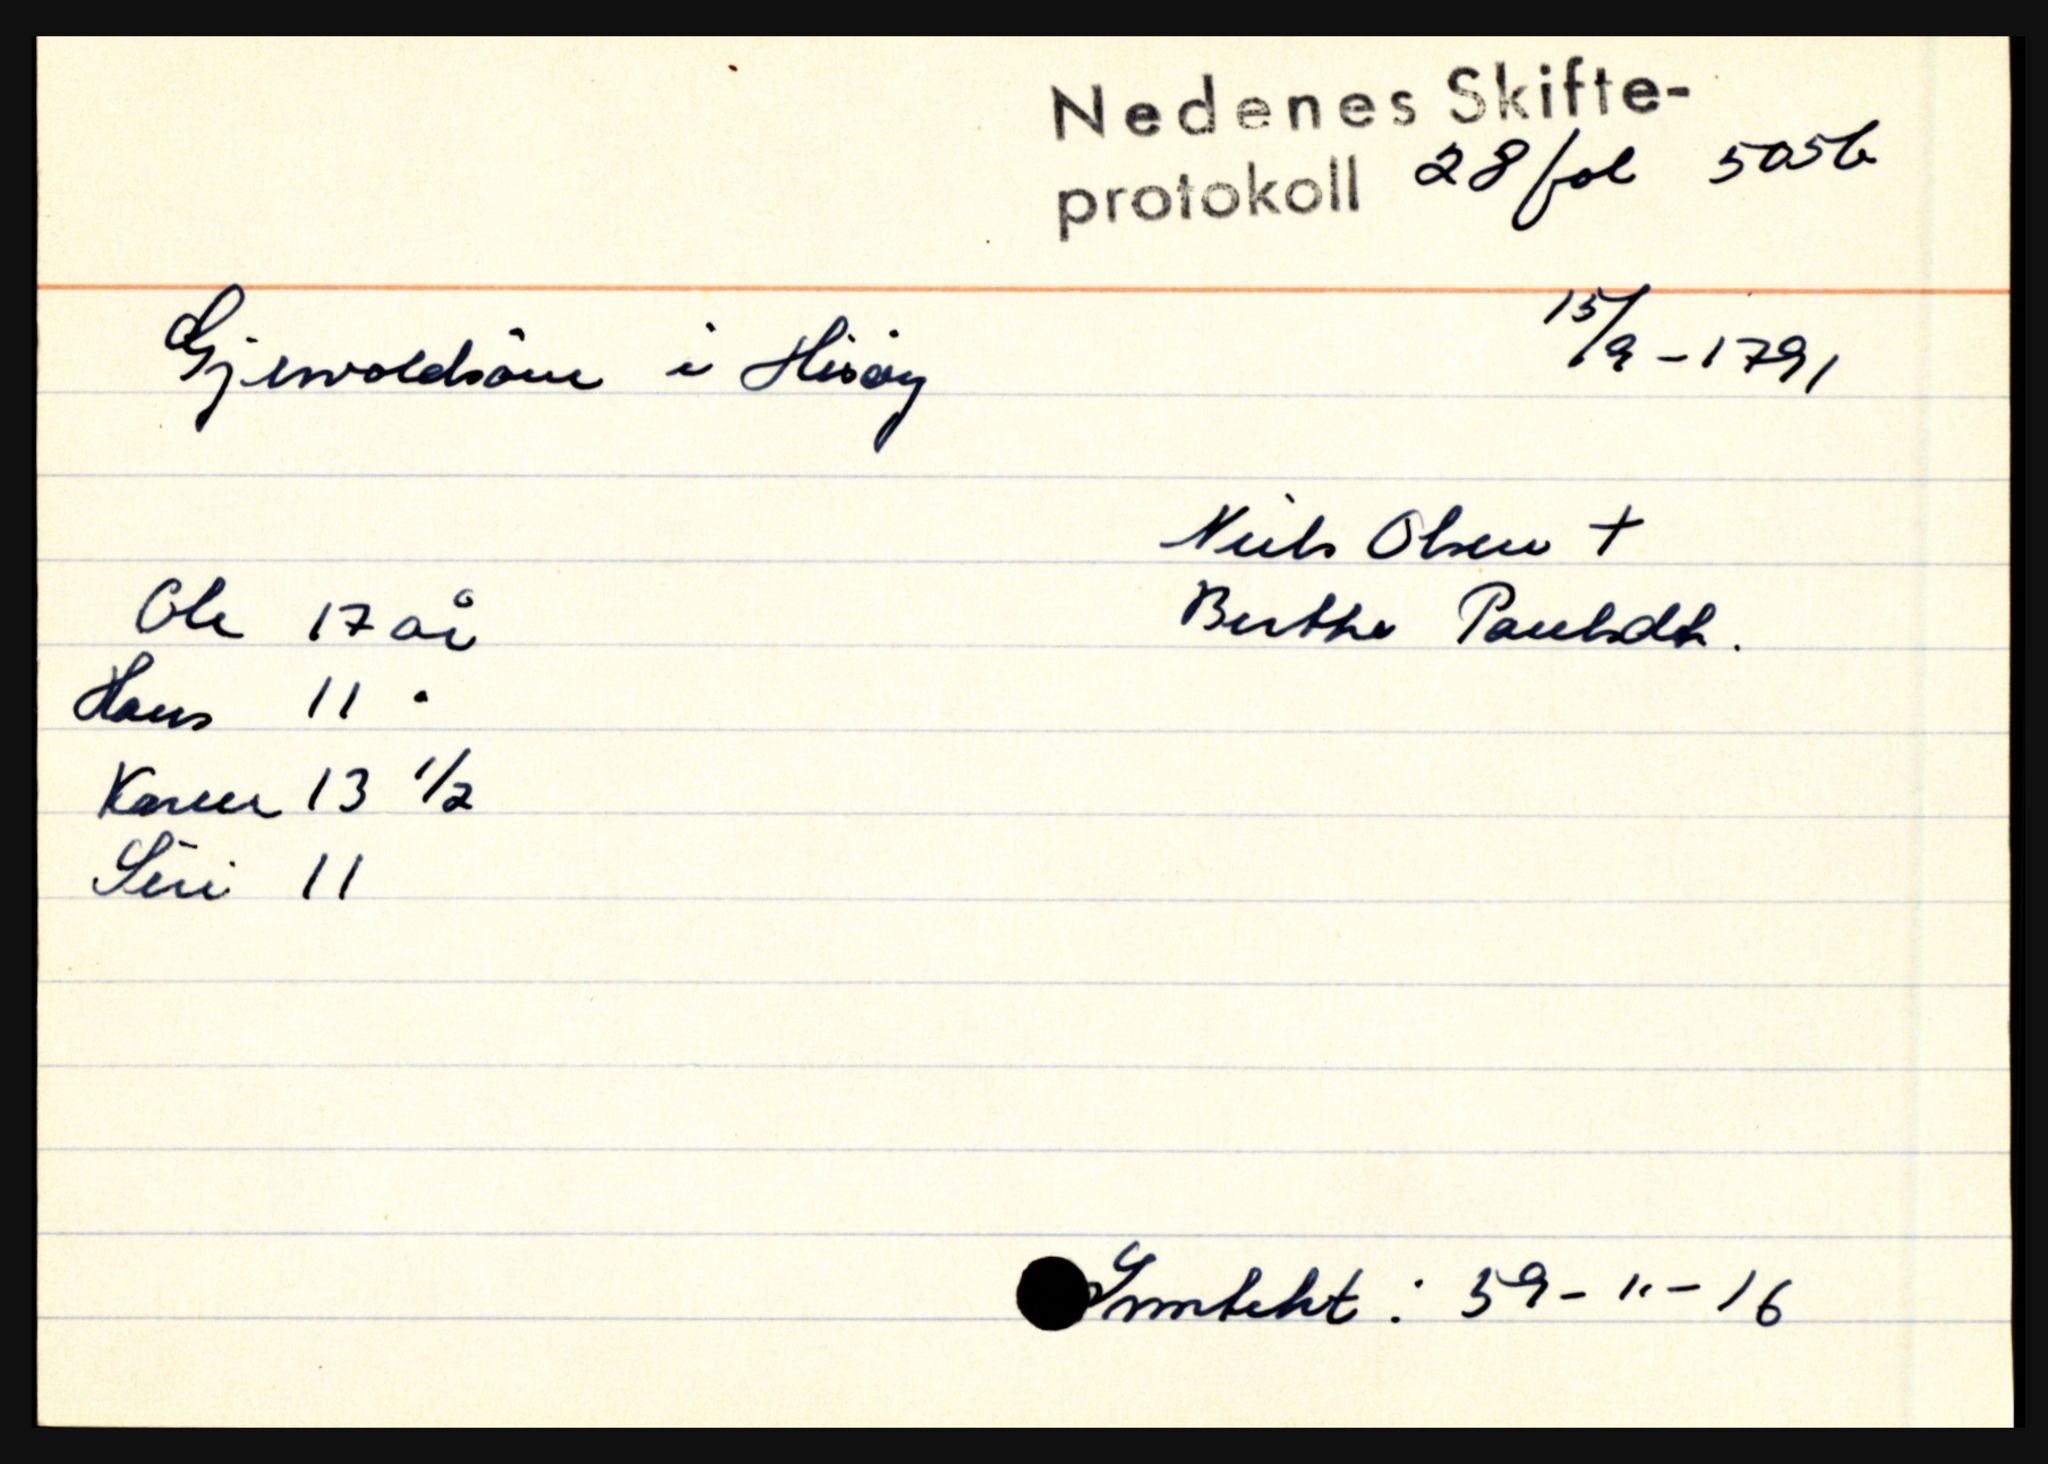 Nedenes Skifte-
protokoll 28 fol 505b
Gjervoldsøen i Hisøy 15/9 - 1791
Niels Olsen +
Ole 17 år Berthe Paulsdtr.
Hans 11 "
Karen 13 1/2
Siri 11
Inntekt : 59 - " - 16